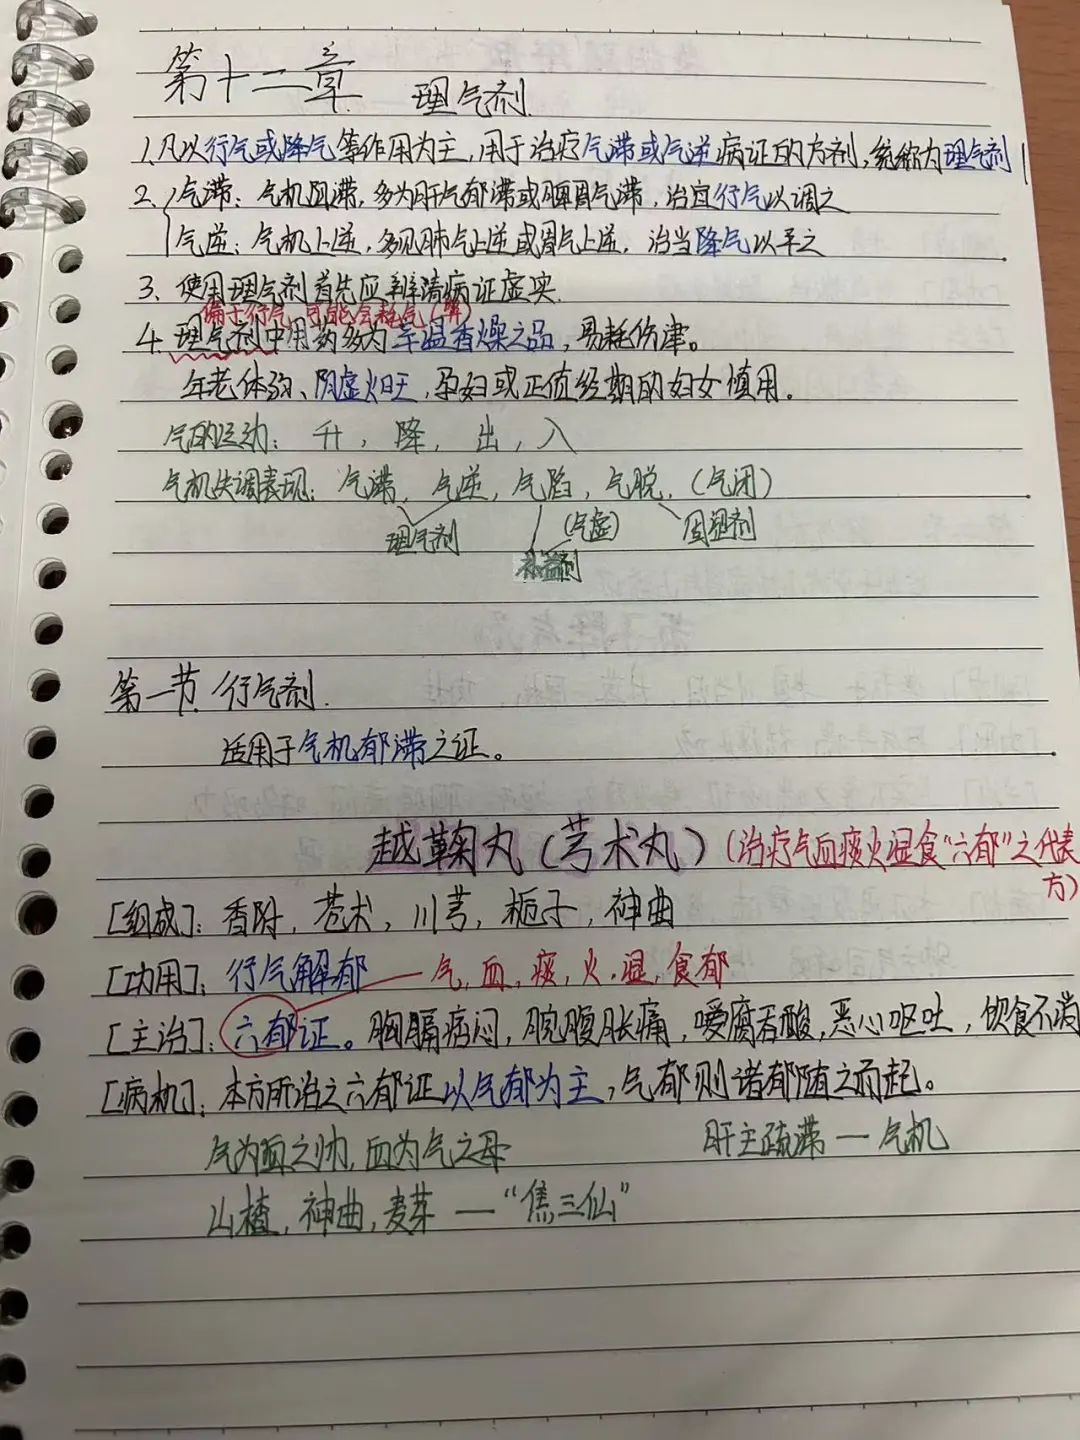 第十二章 理气剂
1.凡以行气或降气等作用为主,用于治疗气滞或气逆病证的方剂,统称为理气剂
2、气滞:气机阻滞,多为肝气郁滞或脾胃气滞,治宜行气以调之
气逆:气机上逆,多见肺气上逆或胃气上逆,治当降气以平之
3、使用理气剂首先应辨清病证虚实.
偏于行气,可能会耗气()
4.理气剂中用药多为辛温香燥之品,易耗伤津。
年老体弱、阴虚火旺,孕妇或正值经期的妇女慎用。
气的运动:升,降,出,入
气机失调表现:气滞,气逆,气陷,气脱,(气闭)
理气剂 (气虚) 固涩剂
补益剂
第一节 行气剂.
适用于气机郁滞之证。
越鞠丸(芎术丸)(治疗气血痰火湿食“六郁”之代表
方)
[组成]:香附,苍术,川芎,栀子,神曲
[功用]:行气解郁——气,血,痰,火,湿,食郁
[主治]:六郁证。胸膈痞闷,脘腹胀痛,嗳腐吞酸,恶心呕吐,饮食不消
[病机]:本方所治之六郁证以气郁为主,气郁则诸郁随之而起。
气为血之帅,血为气之母 肝主疏滞—气机
山楂,神曲,麦芽—“焦三仙”